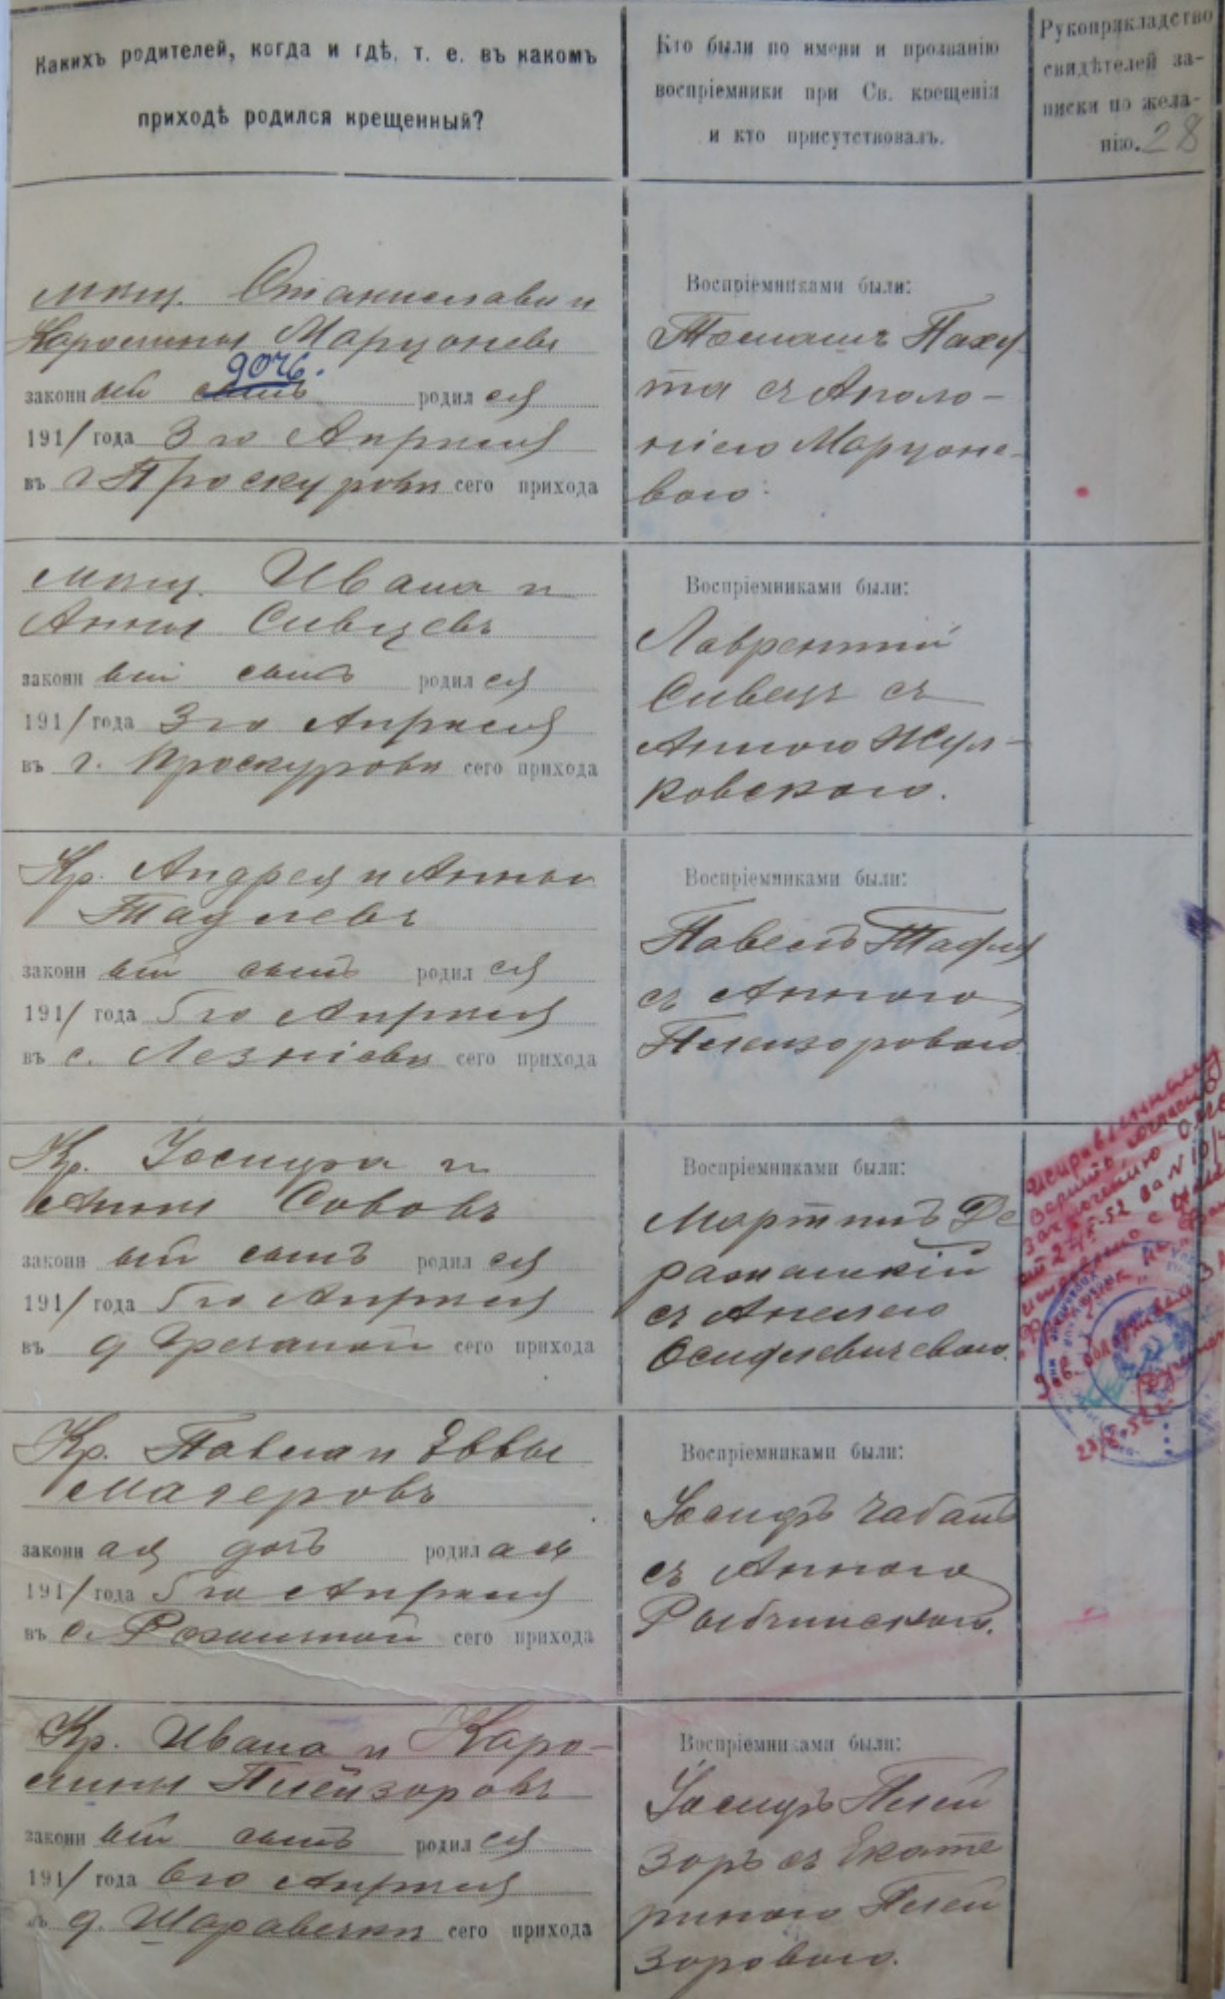 Какихъ родителей, когда и гдѣ, т. е. въ какомъ
приходѣ родился крещенный?
Кто были по имени и прозванію
воспріемники при Св. крещеніи
и кто присутствовалъ.
Рукоприкладство
свидѣтелей за-
писки по жела-
нію. 28
мѣщ. Станислава и
Каролины Марцоневы
дочь.
законн ый сынъ родил ся
1911 года 3го Апрѣля
въ г Проскуровѣ сего прихода
Воспріемниками были:
Томашъ Паху
та съ Аполо-
ніею Марцоне-
вою.
мѣщ. Ивана и
Анны Сивцевъ
законн ый сынъ родил ся
1911 года 3го Апрѣля
въ г. Проскуровѣ сего прихода
Воспріемниками были:
Лаврентій
Сивецъ съ
Анною Жул-
ковскою.
Кр. Андрея и Анны
Тафлевъ
законн ый сынъ родил ся
1911 года 5го Апрѣля
въ с. Лезнѣвѣ сего прихода
Воспріемниками были:
Павелъ Тафля
съ Анною
Плейзоровою
Кр. Іосифа и
Анны Сововъ
законн ый сынъ родил ся
1911 года 5го Апрѣля
въ д Гречаной сего прихода
Воспріемниками были:
Мартинъ Де
ражанскій
съ Анелею
Осифлевичевою.
Исправленному
верить, согласно
заключению
от 27/5-52 за N 10/
исправлено с
Зав.
23/8-52 г.
Кр. Павла и Еввы
Магеровъ
законн ая дочь родил ася
1911 года 5го Апрѣля
въ с. Ружичной сего прихода
Воспріемниками были:
Іосифъ Чабанъ
съ Анною
Рыбчинскою.
Кр. Ивана и Каро-
лины Плейзоровъ
законн ый сынъ родил ся
1911 года 6го Апрѣля
въ д. Шаравечкѣ сего прихода
Воспріемниками были:
Іосифъ Плей
зоръ съ Екате
риною Плей
зоровою.